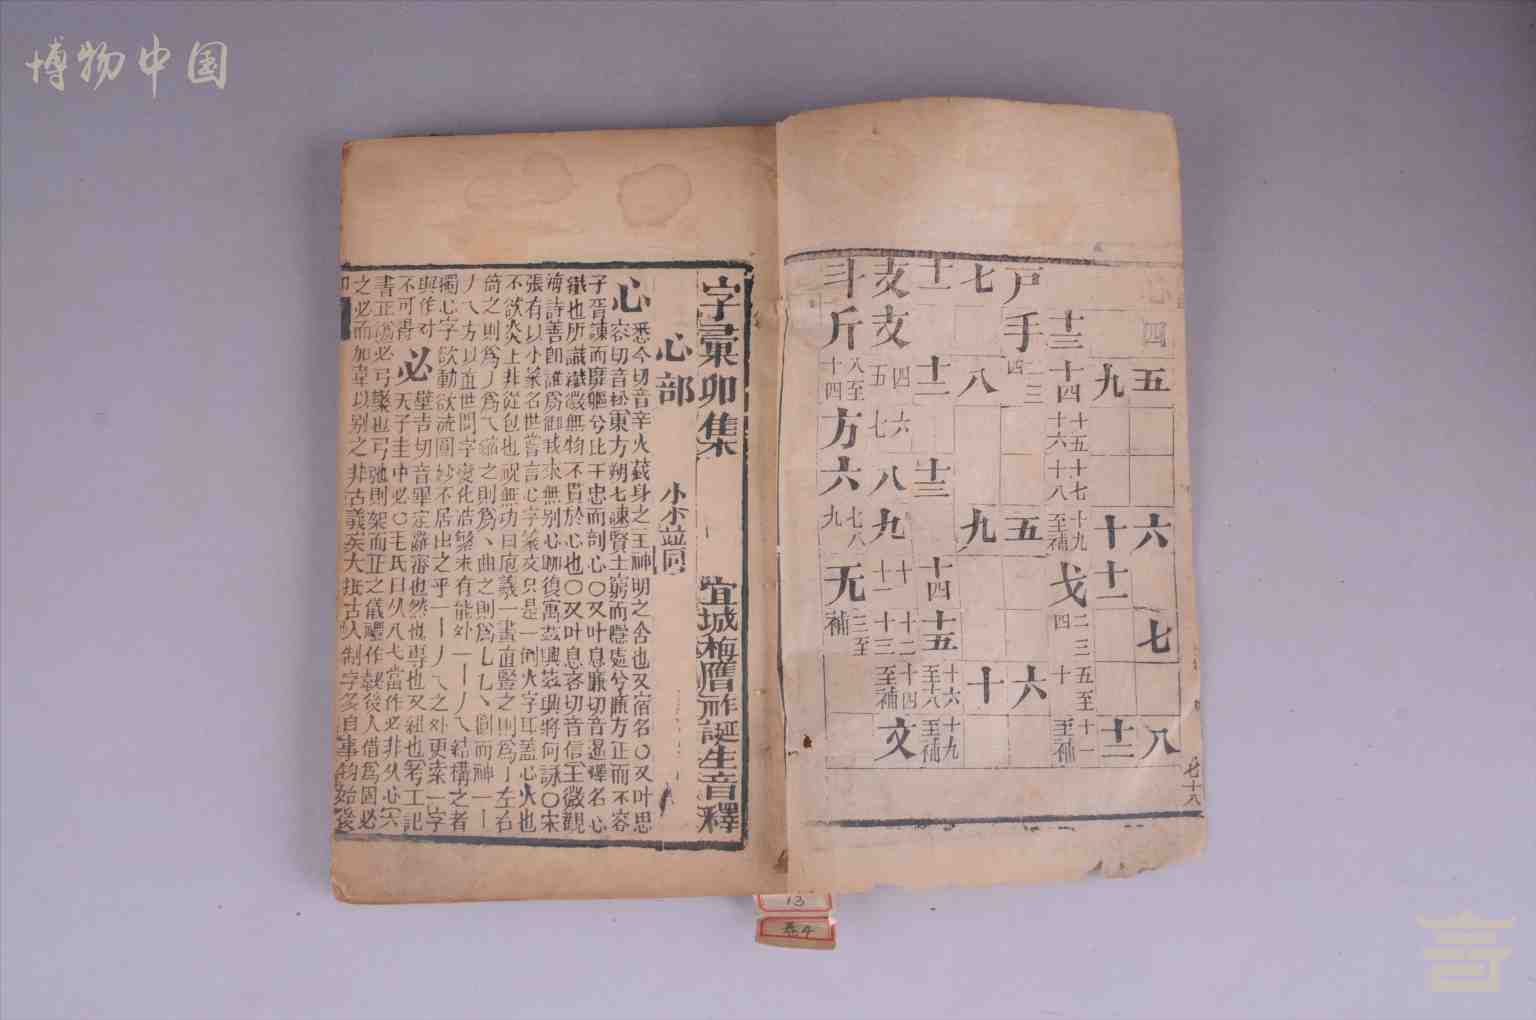 博物中国
心四
五
六
七
八
九
十
十一
十二
十三
十四
十五十六
十七十八
十九至補
戈
二三四
五至十
十一至補
戶
手
二三四
五
六
七
八
九
十
十一
十二
十三
十四
十五
十六至十八
十九至補
支
攴
四五
六七
八
九
十十一
十二十三
十四至補
文
斗
斤
八至十四
方
六
七八九
无
三至補
七十八
字彙卯集 宣城梅膺祚誕生音釋
心部 小㣺並同
心 悉今切音辛火藏身之王神明之舍也又宿名○又叶思
容切音松東方朔七諫賢士窮而隱處兮廉方正而不容
子胥諫而靡軀兮比干忠而剖心○又叶息廉切音暹釋名心
纎也所識纎微無物不貫於心也○又叶息吝切音信王微觀
海詩善卽誰爲御我來無別心聊復寓茲興茲興將何詠○宋
張有以小篆名世嘗言心字篆文只是一倒火字耳蓋心火也
不欲炎上非從包也祝無功曰庖羲一畫直豎之則爲丨左右
倚之則爲丿爲乀縮之則爲丶曲之則爲乚乙丶圓而神一丨
丿乀方以直世間字變化浩繁未有能外一丨丿乀結構之者
獨心字欲動欲流圓妙不居出之乎一丨丿乀之外更索一字
與作对
不可得
必 壁吉切音畢定辭審也然也專也又紐也考工記
天子圭中必○毛氏曰从八弋當作必非从心六
書正譌必弓檠也弓弛則架而正之儀禮作䪐後人借爲固必
之必而加韋以別之非古義矣大抵古人制字多自事物始後
13
卷4